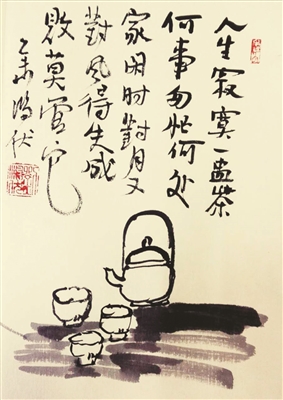 人生寂寞一盏茶
何事匆忙何处
家闲时對月又
對風得失成
敗莫管它
乙未鸿伏